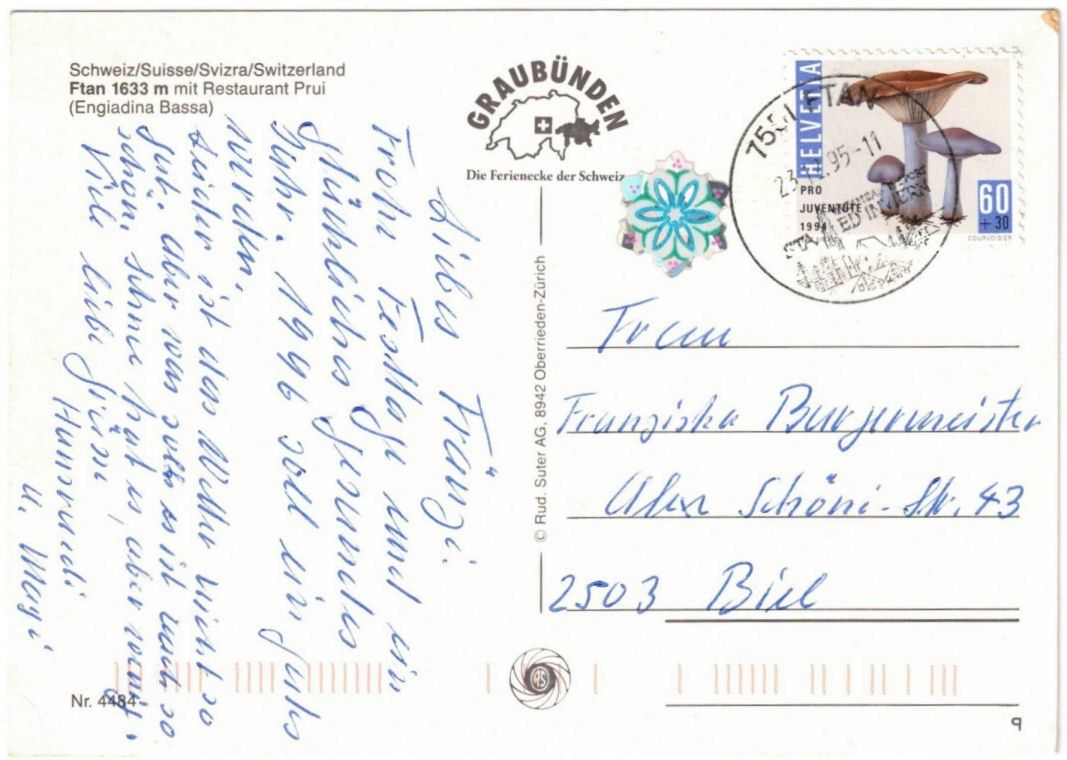 Schweiz/Suisse/Svizra/Switzerland
Ftan 1633 m mit Restaurant Prui
(Engiadina Bassa)
GRAUBÜNDEN
Die Ferienecke der Schweiz
HELVETIA
PRO
JUVENTUTE
1994
60
+30
COURVOISIER
FTAN
95-11
Liebes Fränzi.
Frohe Festtage und ein
glückliches gesundes
Jahr. 1996 soll ein gutes
werden.
Leider ist das Wetter nicht so
gut. Aber was solls es ist auch so
schön. Schnee hat es, aber wenig.
Viele liebe Grüsse
Hansruedi
u. Magi
Frau
Franziska Burgermeister
Alex Schöni-Str. 43
2503 Biel
© Rud. Suter AG, 8942 Oberrieden-Zürich
RS
Nr. 4484
9